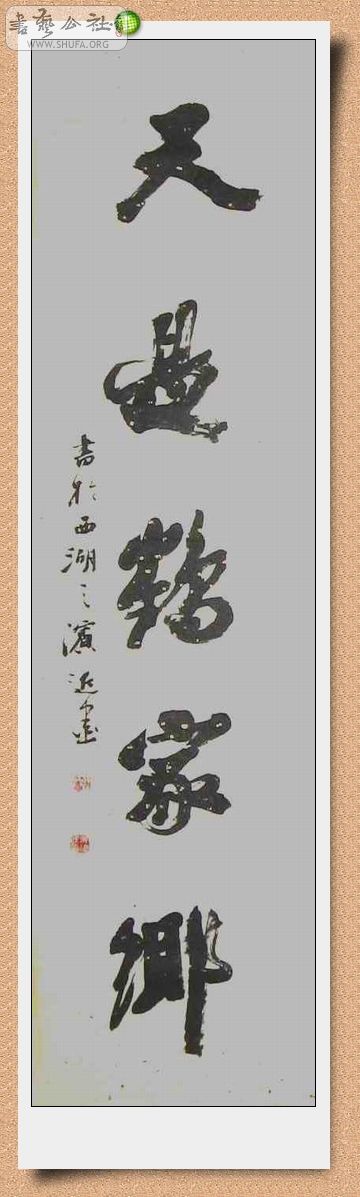 書藝公社
WWW.SHUFA.ORG
天是鶴家鄉
書於西湖之濱近墨